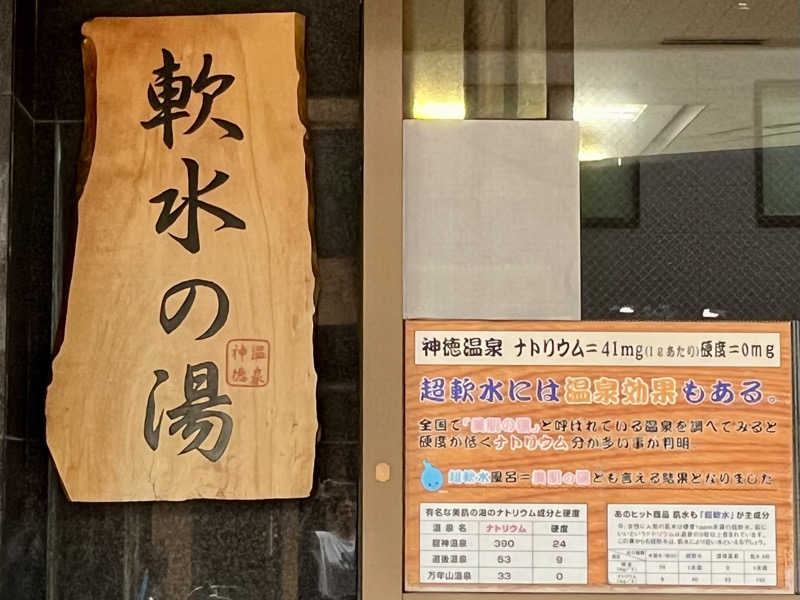 軟水の湯
神徳温泉
神徳温泉 ナトリウム=41mg(1ℓあたり)硬度=0mg
超軟水には温泉効果もある。
全国で『美肌の湯』と呼ばれている温泉を調べてみると
硬度が低くナトリウム分が多い事が判明
超軟水風呂=美肌の湯とも言える結果となりました
有名な美肌の湯のナトリウム成分と硬度
温泉名 ナトリウム 硬度
龍神温泉 390 24
道後温泉 63 9
万年山温泉 33 0
あのヒット商品 肌水も「超軟水」が主成分